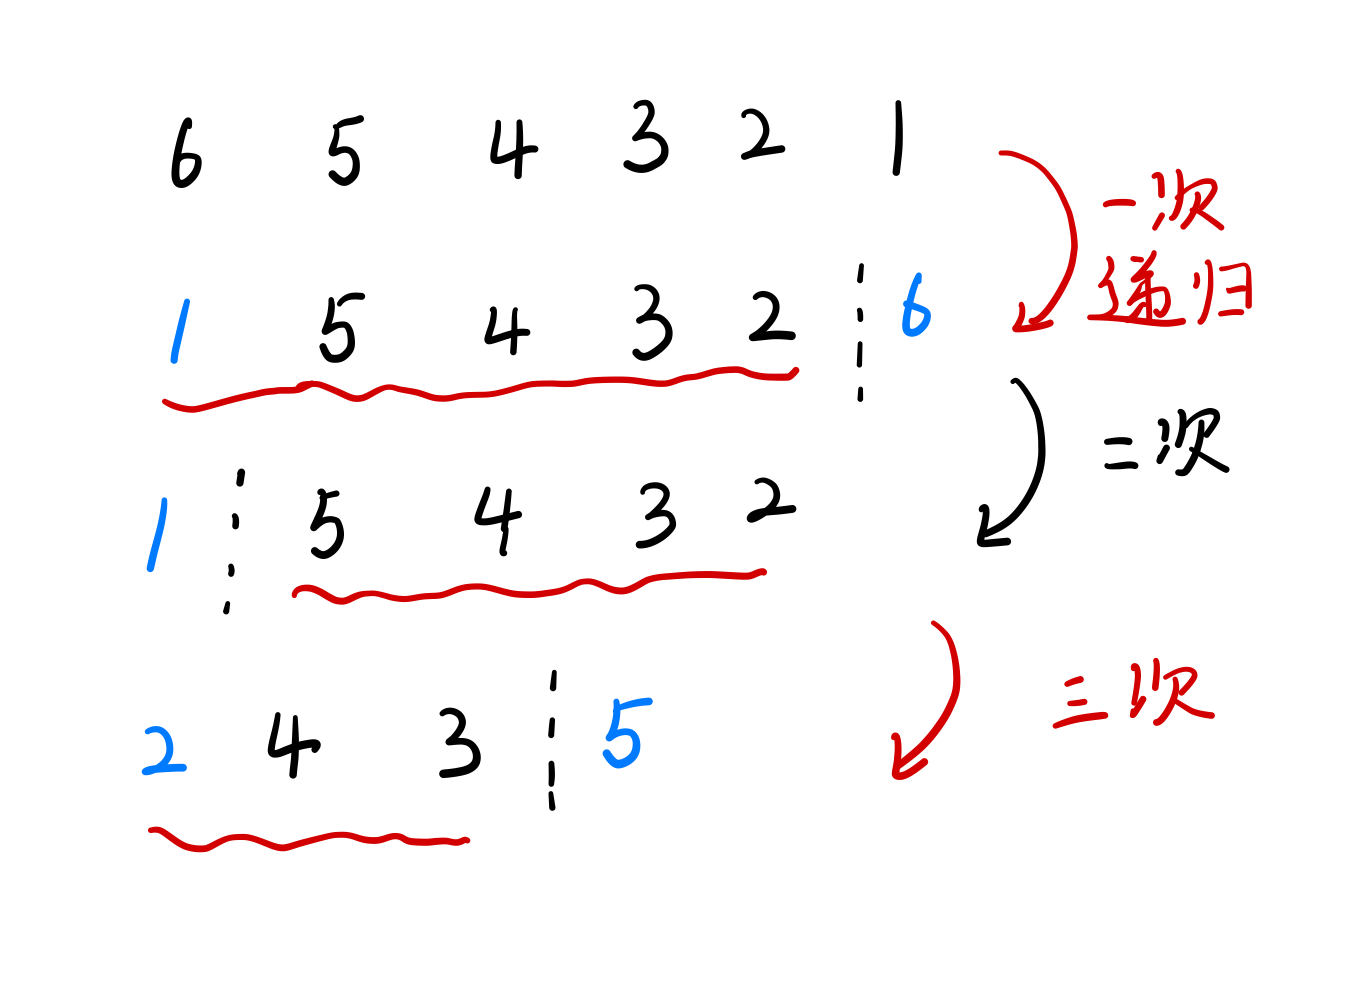 6 5 4 3 2 1
一次
递归
1 5 4 3 2 6
二次
1 5 4 3 2
三次
2 4 3 5